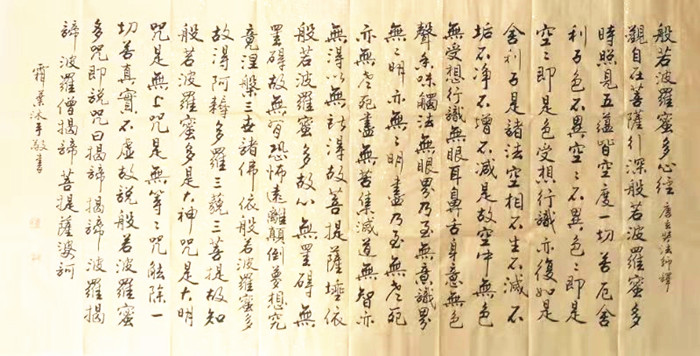 般若波羅蜜多心經 唐玄奘法師譯
觀自在菩薩行深般若波羅蜜多
時照見五蘊皆空度一切苦厄舍
利子色不異空〻不異色〻即是
空〻即是色受想行識亦復如是
舍利子是諸法空相不生不滅不
垢不淨不增不減是故空中無色
無受想行識無眼耳鼻舌身意無色
聲香味觸法無眼界乃至無意識界
無〻明亦無〻明盡乃至無老死
亦無老死盡無苦集滅道無智亦
無得以無所得故菩提薩埵依
般若波羅蜜多故心無罣礙無
罣礙故無有恐怖遠離顛倒夢想究
竟涅槃三世諸佛依般若波羅蜜多
故得阿耨多羅三藐三菩提故知
般若波羅蜜多是大神咒是大明
咒是無上咒是無等〻咒能除一
切苦真實不虛故說般若波羅蜜
多咒即說咒曰揭諦揭諦波羅揭
諦波羅僧揭諦菩提薩婆訶
敬書